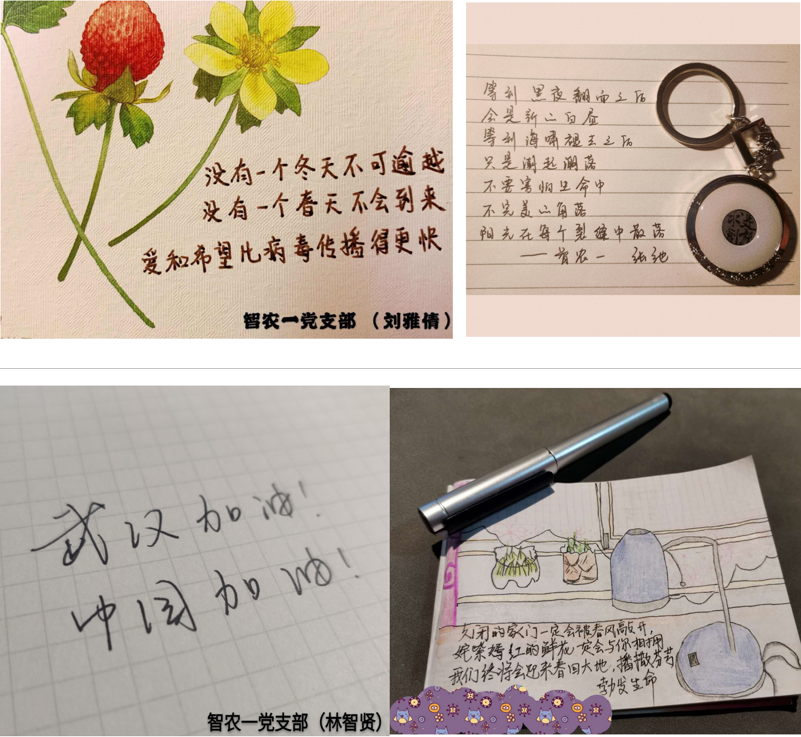 没有一个冬天不可逾越
没有一个春天不会到来
爱和希望比病毒传播得更快
智农一党支部 (刘雅倩)
等到黑夜翻面之后
会是新的白昼
等到海啸褪去之后
只是潮起潮落
不要害怕生命中
不完美的角落
阳光在每个裂缝中散落
——智农一 张弛
武汉加油!
中国加油!
智农一党支部(林智贤)
关闭的家门一定会被春风敲开,
姹紫嫣红的鲜花一定会与你相拥
我们终将会迎来春回大地,播撒芬芳
勃发生命